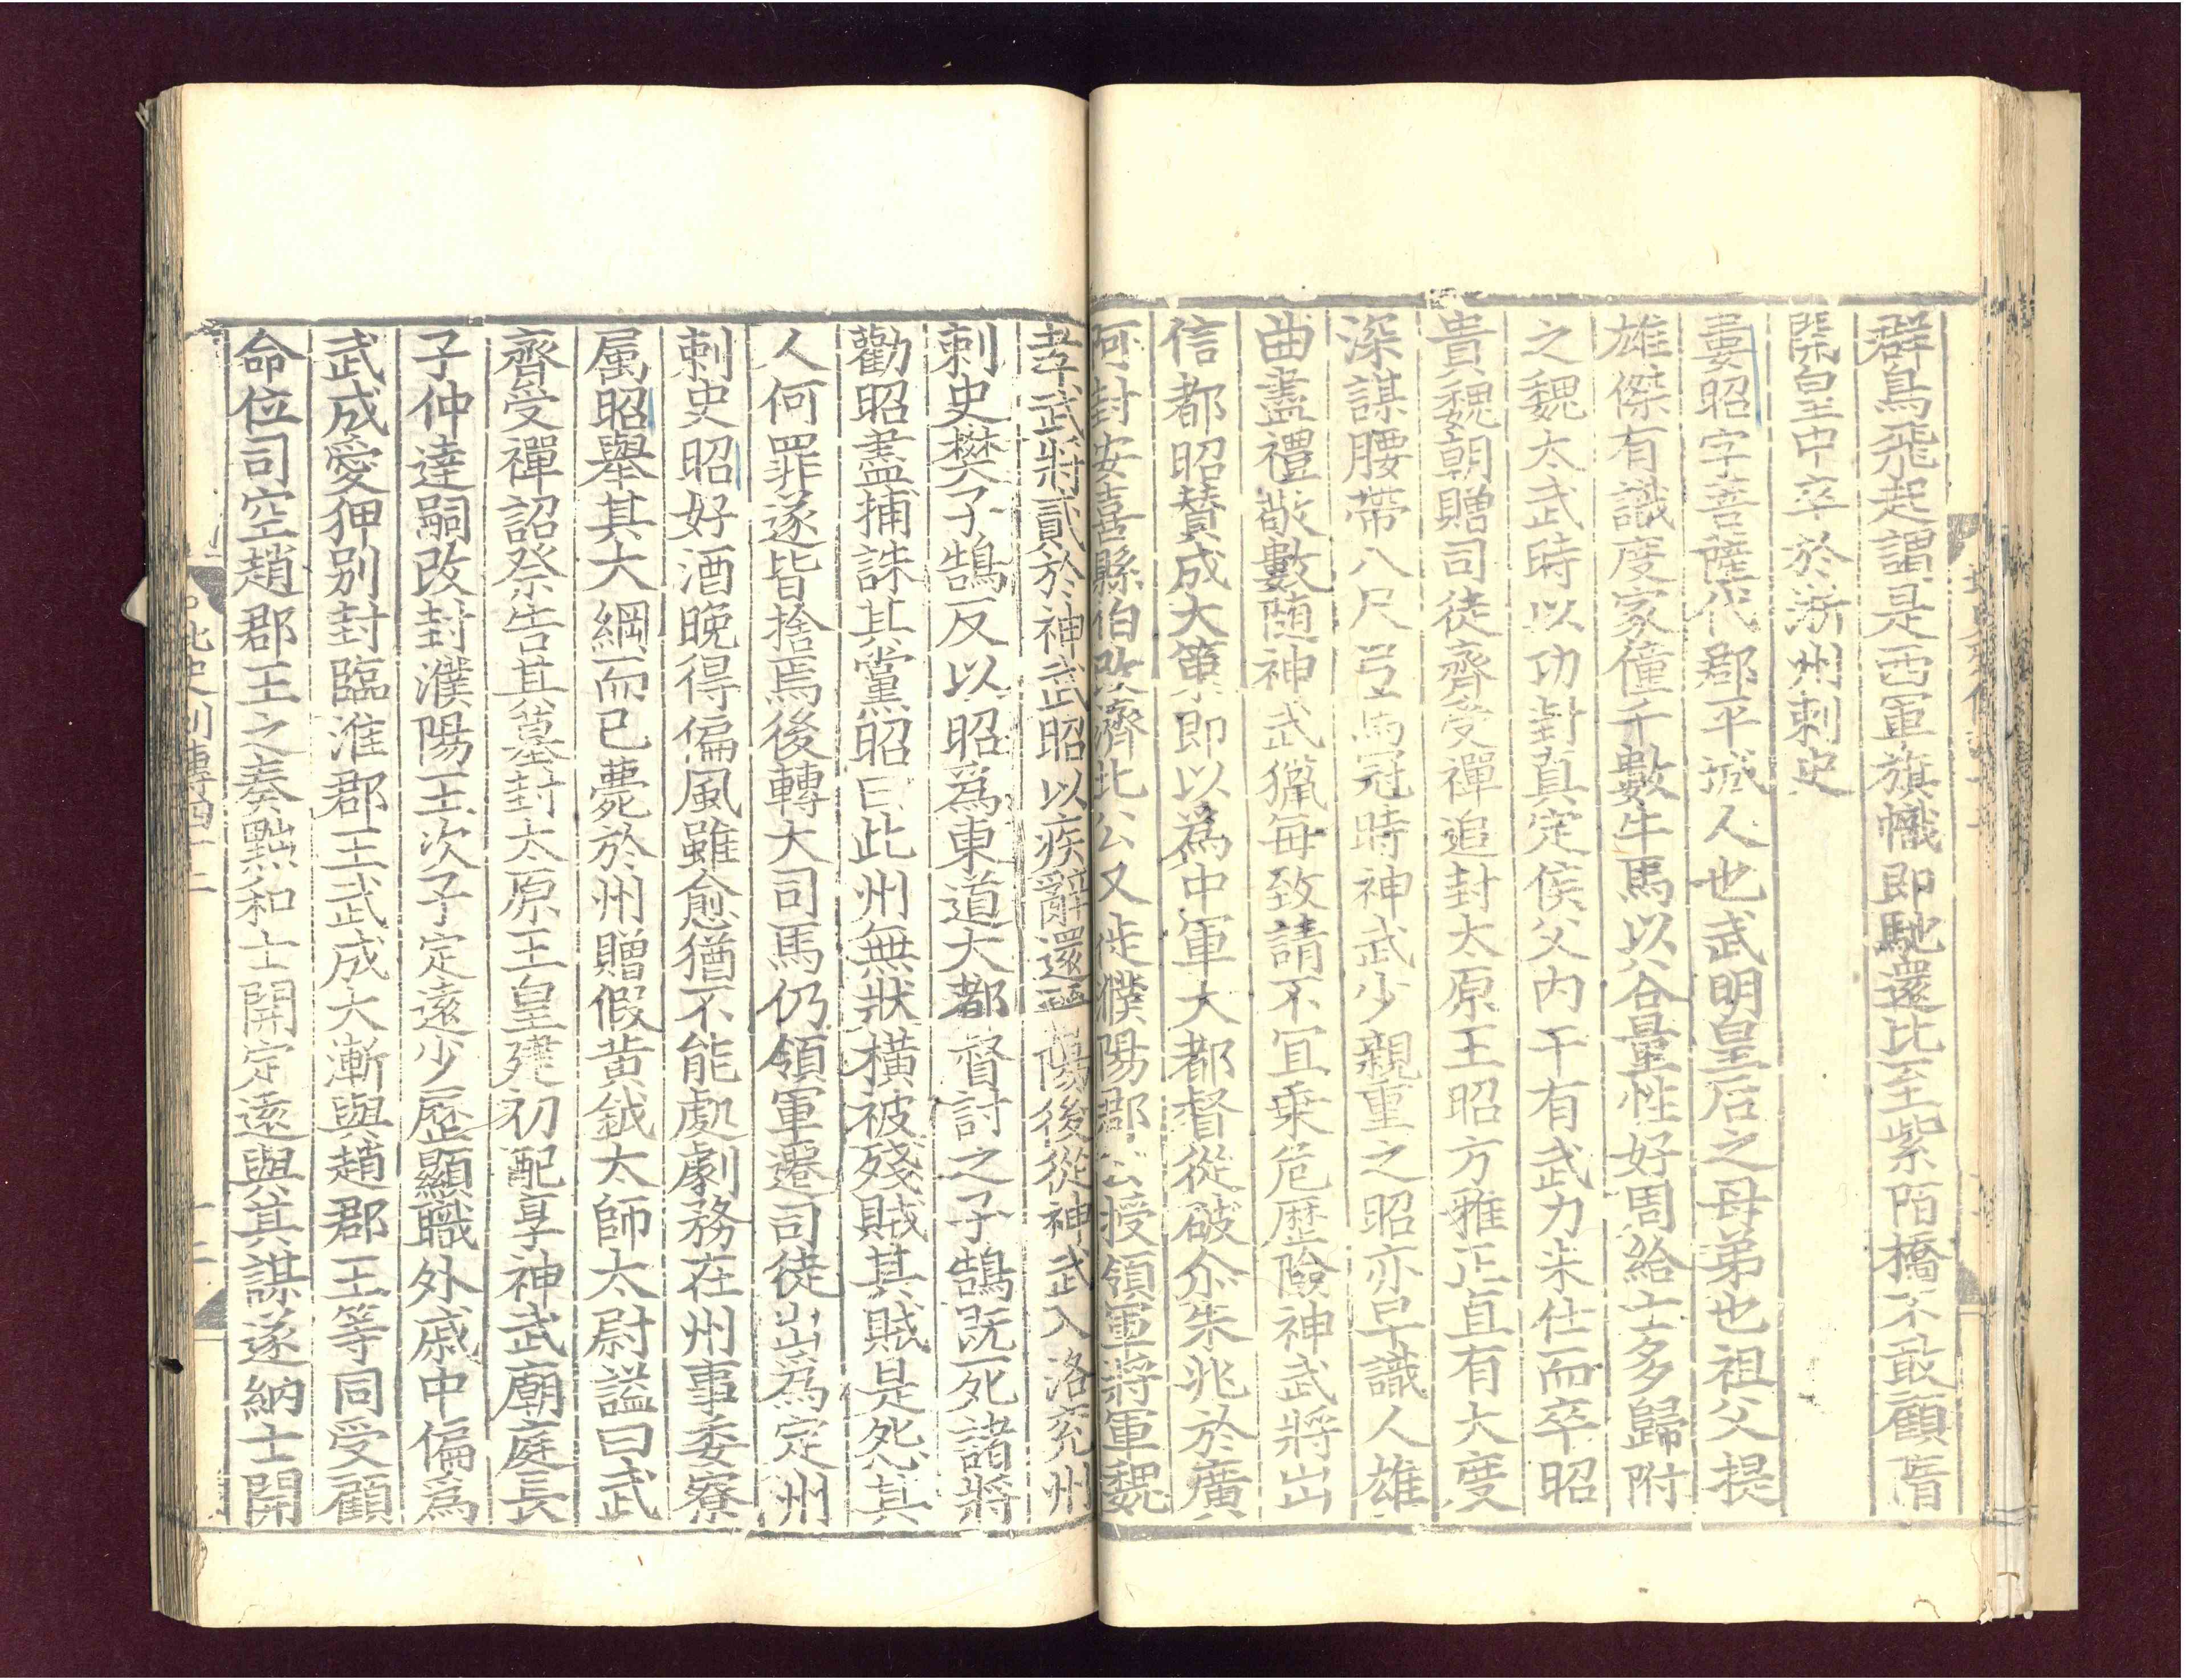 群鳥飛起謂是西軍旗幟即馳還比至紫陌橋不敢顧隋
開皇中卒於浙州刺史
婁昭字菩薩代郡平城人也武明皇后之母弟也祖父提
雄傑有識度家僮千數牛馬以谷量性好周給士多歸附
之魏太武時以功封真定侯父内干有武力未仕而卒昭
貴魏朝贈司徒齊受禪追封太原王昭方雅正直有大度
深謀腰帶八尺弓馬冠時神武少親重之昭亦早識人雄
曲盡禮敬數随神武獵每致請不宜乗危歷險神武將出
信都昭賛成大策即以爲中軍大都督從破尒朱兆於廣
阿封安喜縣伯改濟北公又徙濮陽郡公授領軍將軍魏
孝武將貳於神武昭以疾辭還晉陽後從神武入洛兖州
刺史樊子鵠反以昭爲東道大都督討之子鵠既死諸將
勸昭盡捕誅其黨昭曰此州無狀横被殘賊其賊是怨其
人何罪遂皆捨焉後轉大司馬仍領軍遷司徒出爲定州
刺史昭好酒晚得偏風雖愈猶不能處劇務在州事委寮
属昭舉其大綱而已薨於州贈假黄鉞太師太尉謚曰武
齊受禪詔祭告其墓封太原王皇建初配享神武廟庭長
子仲達嗣改封濮陽王次子定遠少歷顯職外戚中偏爲
武成愛狎别封臨淮郡王武成大漸與趙郡王等同受顧
命位司空趙郡王之奏黜和士開定遠與其謀遂納士開
北史列傳四十二
十二